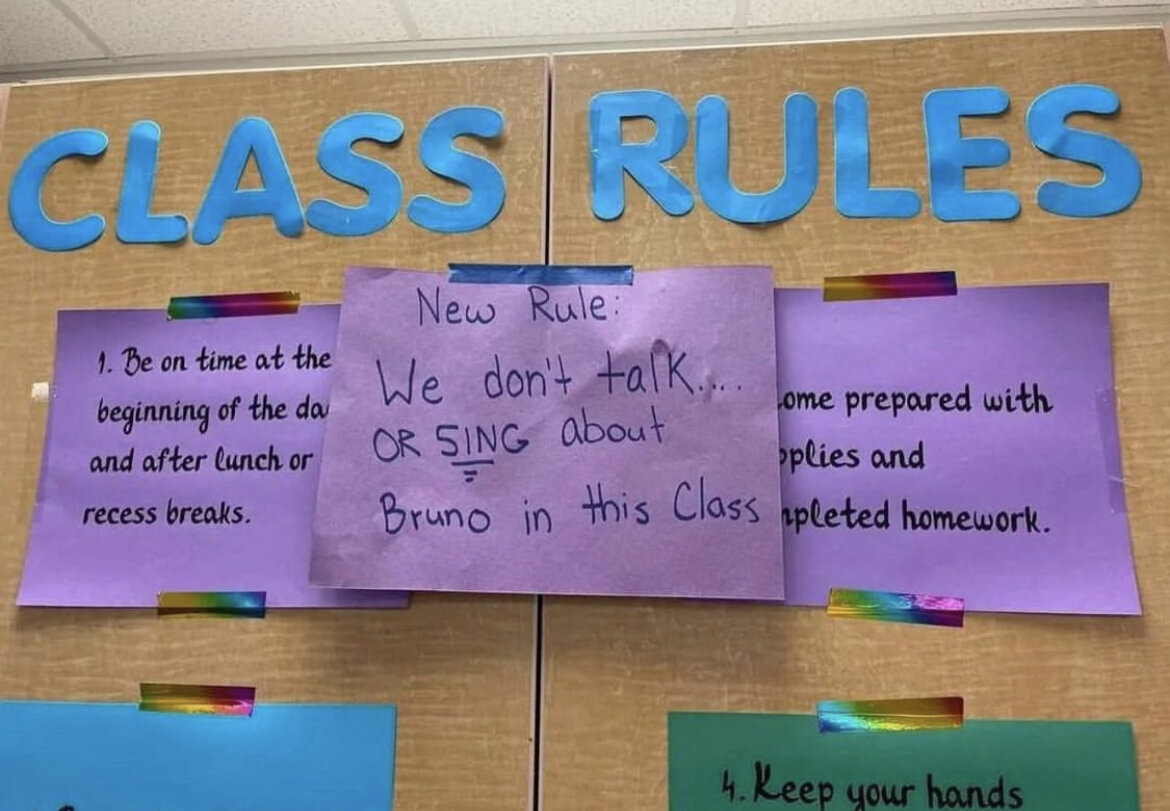 CLASS RULES
1. Be on time at the
beginning of the da
and after lunch or
recess breaks.
New Rule:
We don't talk....
OR SING about
Bruno in this Class
ome prepared with
plies and
pleted homework.
4. Keep your hands